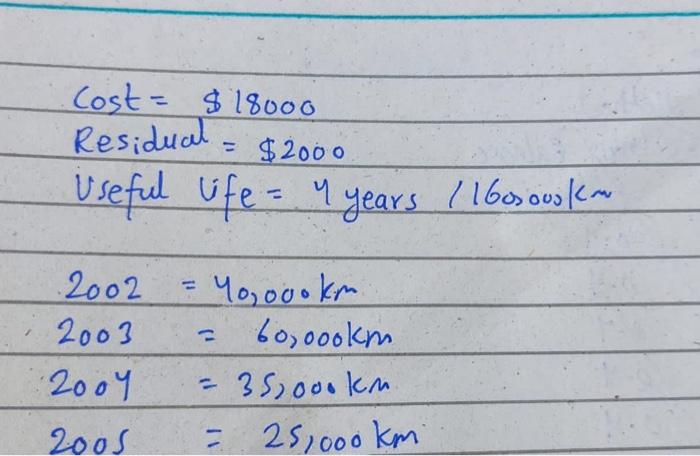 Cost = $18000
Residual = $2000
Useful life = 4 years / 160,000km
2002 = 40,000km
2003 = 60,000km
2004 = 35,000km
2005 = 25,000km